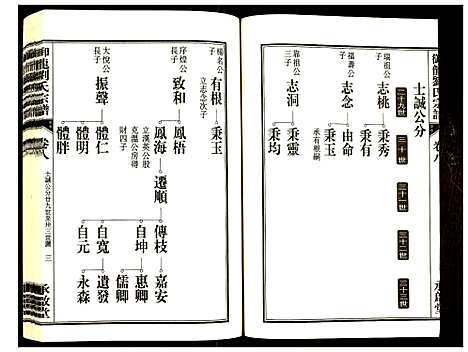 御龍劉氏宗譜 卷八
士誠公分
二十九世
三十世
三十一世
三十二世
三十三世
瑞祖公子
志桃
秉秀
秉有
福壽公子
志念
由命
秉玉
承有根嗣
靠祖公三子
志洞
秉靈
秉均
承啟堂
御龍劉氏宗譜
卷八
士誠公分廿九世至卅三世圖
三
承啟堂
楊名公子
有根
立志念次子
秉玉
序煌公長子
致和
鳳梧
鳳海
立漢英公股
克溫公房得
財四子
遷順
傳枝
嘉安
自坤
惠卿
儒卿
自寬
遺發
自元
永森
大悅公長子
振聲
體仁
體明
體胖